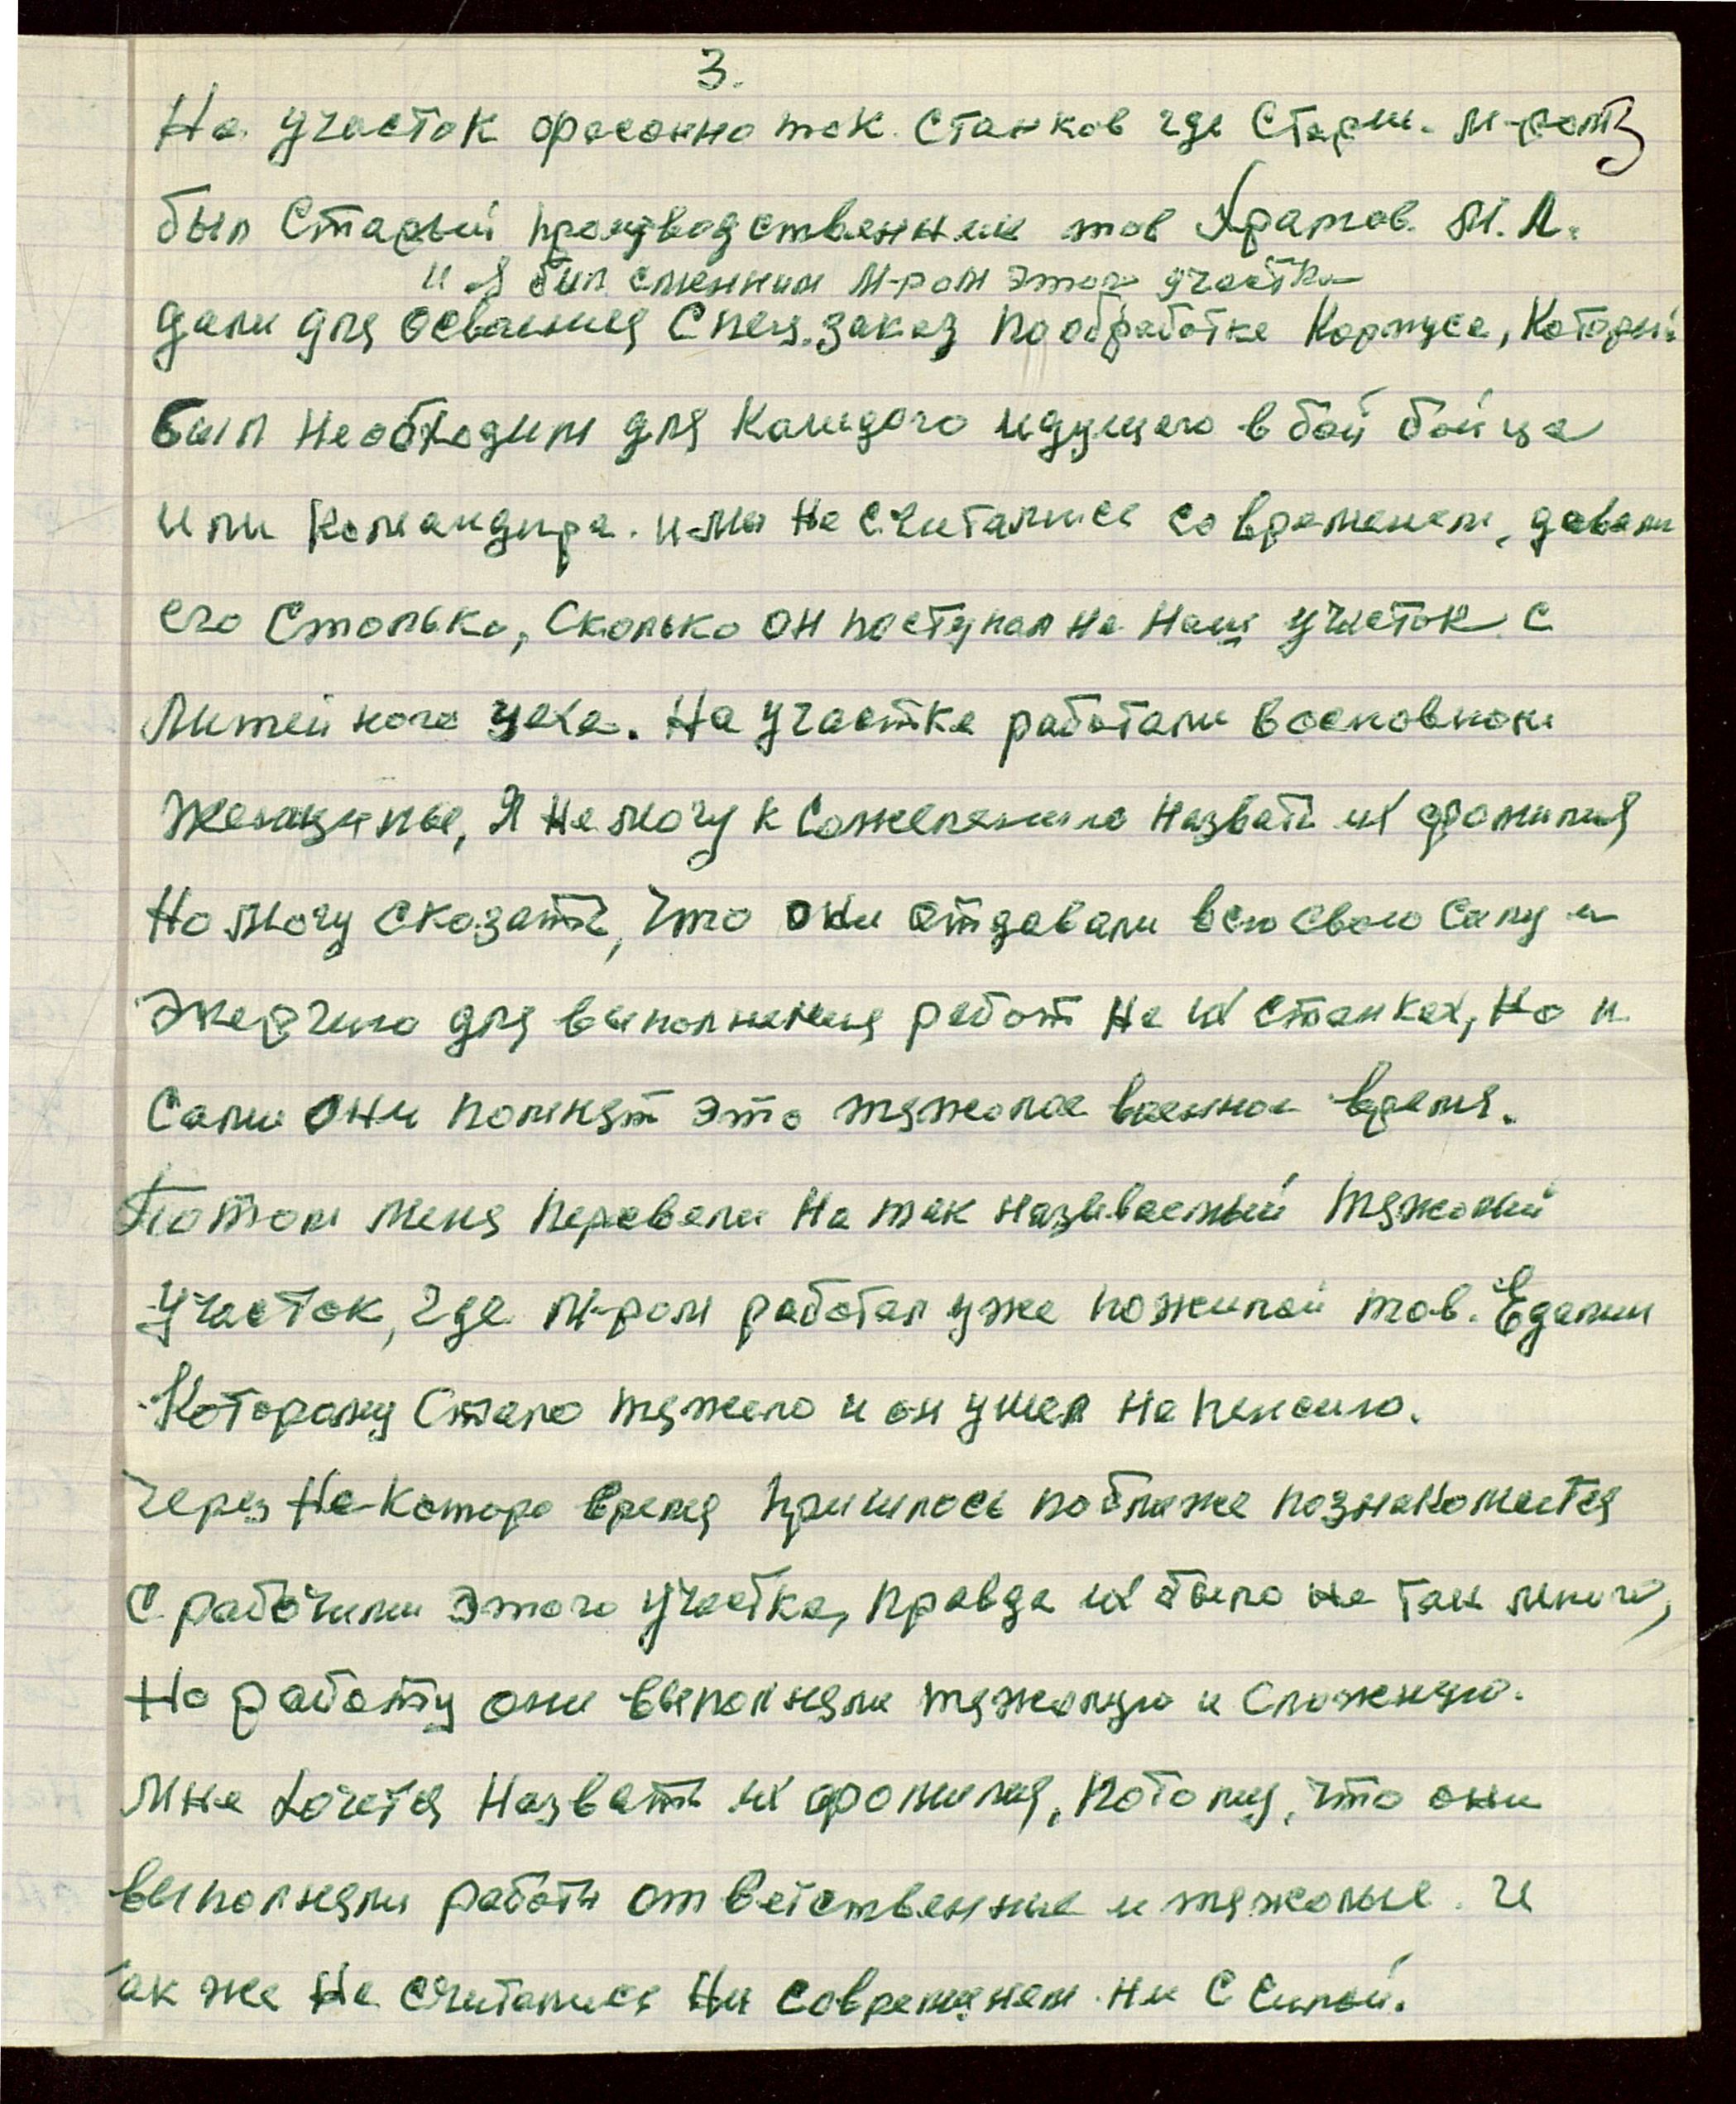 3.
На участок фасонно ток. станков где Старш. м-ром
3
был Старый производственник тов Храмов. М. А.
и я был сменным м-ром этого участка
дали для освоения Спец.заказ по обработке Корпуса, Который
был необходим для Каждого идущего в бой бойца
или Командира. и мы не считались со временем, давали
его Столько, Сколько он поступал на Наш участок с
Литейного цеха. На участке работали восновном
женщины, Я не могу к Сожелению назвать их фамилия,
Но могу сказать, что они отдавали всю свою силу и
Энергию для выполнения работ на их станках, Но и
Сами они помнят это тяжолое военное время.
Потом меня перевели на так называемый тяжолый
участок, где м-ром работал уже пожилой тов.
Которому Стало тяжело и он ушел на пенсию.
Через Не-которо время пришлось поближе познакомится
с рабочими этого участка, правда их было не так много,
Но работу они выполняли тяжолую и Сложную.
Мне хочется Назвать их фамилия, потому, что они
выполняли работы ответственные и тяжолые. и
ак же Не считались Ни современем ни с Силой.